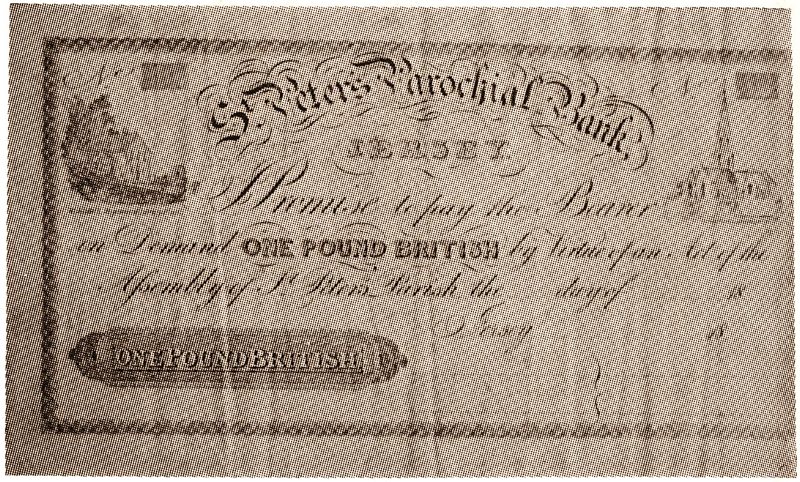 No No
St. Peter's Parochial Bank,
JERSEY.
I Promise to pay the Bearer
on Demand ONE POUND BRITISH by Virtue of an Act of the
Assembly of St Peters Parish the day of 18
Jersey 18
ONE POUND BRITISH